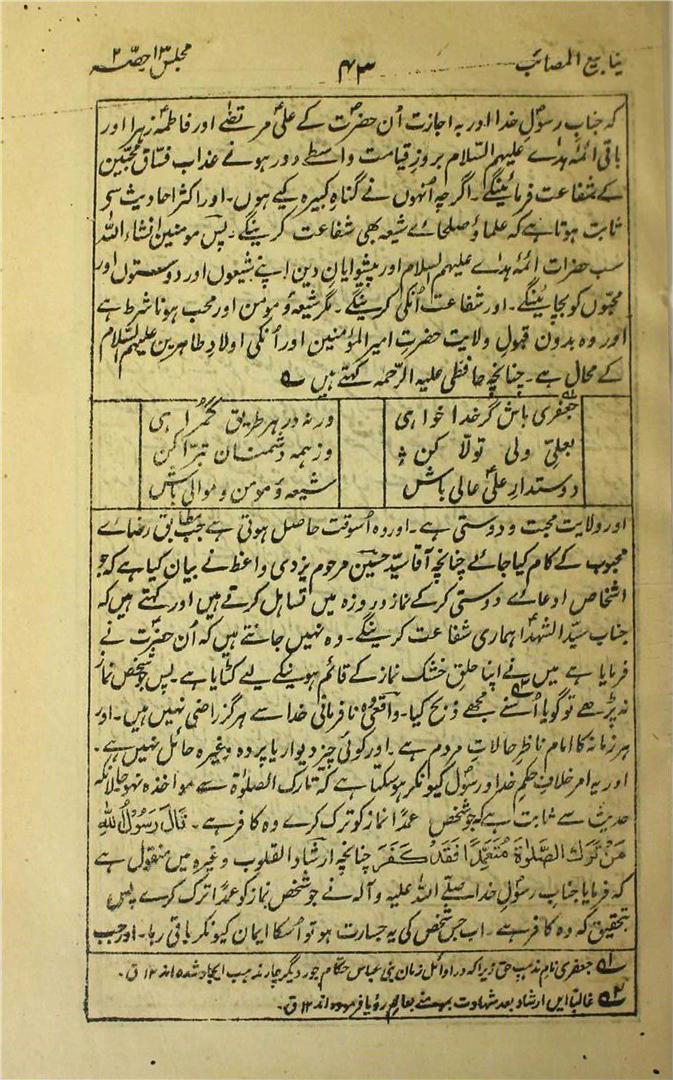 ینابیع المصائب
۴۳
مجلس ۱۳ حصّہ ۲
کہ جناب رسولِ خدا اور بہ اجازت اُن حضرت کے علیؑ مرتضےٰ اور فاطمہؑ زہرا اور
باقی ائمّۂ ہداے علیہم السّلام بروزِ قیامت واسطے دور ہونے عذاب فسّاق محبّین
کے شفاعت فرمائینگے۔ اگرچہ اُنہوں نے گناہِ کبیرہ کیے ہوں۔ اور اکثر احادیث سے
ثابت ہوتا ہے کہ علما و صلحاے شیعہ بھی شفاعت کرینگے۔ پس مومنین انشاء اللہ
سب حضرات ائمّۂ ہداے علیہم السلام اور پیشوایانِ دین اپنے شیعوں اور دوستوں اور
محبّوں کو بچائینگے۔ اور شفاعت اُنکی کرینگے۔ مگر شیعہ و مومن اور محب ہونا شرط ہے
اور وہ بدون قبولِ ولایت حضرتِ امیر المؤمنین اور اُنکی اولادِ طاہرین علیہم السّلام
کے محال ہے۔ چنانچہ حافظی علیہ الرّحمہ کہتے ہیں ؎
جعفری باش گر خدا خواہی
ورنہ در ہر طریق گمراہی
بعلیِّ ولی تولّا کن
وز ہمہ دشمنان تبرّا کن
دوستدارِ علیِؑ عالی باش
شیعہ و مومن و موالی باش
اور ولایت محبت و دوستی ہے۔ اور وہ اُسوقت حاصل ہوتی ہے جب مطابق رضاے
محبوب کے کام کیا جائے چنانچہ آقا سیّد حسین مرحوم یزدی واعظ نے بیان کیا ہے کہ جو
اشخاص ادعاے دوستی کر کے نماز و روزہ میں تساہل کرتے ہیں اور کہتے ہیں کہ
جناب سیّد الشہداؑ ہماری شفاعت کرینگے۔ وہ نہیں جانتے ہیں کہ اُن حضرت نے
فرمایا ہے میں نے اپنا حلقِ خشک نماز کے قائم ہونیکے لیے کٹایا ہے۔ پس جو شخص نماز
نہ پڑھے تو گویا اُسنے مجھے ذبح کیا۔ واقعی وہ نافرمانی خدا سے ہرگز راضی نہیں ہیں۔ اور
ہر زمانہ کا امام ناظرِ حالاتِ مردم ہے۔ اور کوئی چیز دیوار یا پردہ وغیرہ حائل نہیں ہے۔
اور یہ امر خلافِ حکمِ خدا و رسول کیونکر ہو سکتا ہے کہ تارک الصلوٰۃ سے مواخذہ نہو حالانکہ
حدیث سے ثابت ہے کہ جو شخص عمداً نماز کو ترک کرے وہ کافر ہے۔ قَالَ رَسُوْلُ اللّٰہِ
مَنْ تَرَكَ الصَّلٰوةَ مُتَعَمِّدًا فَقَدْ كَفَرَ چنانچہ ارشاد القلوب وغیرہ میں منقول ہے
کہ فرمایا جناب رسولِ خدا صلّے اللہ علیہ و آلہ نے جو شخص نماز کو عمداً ترک کرے پس
بتحقیق کہ وہ کافر ہے۔ اب جس شخص کی یہ جسارت ہو تو اُسکا ایمان کیونکر باقی رہا۔ اور جب
۱؎ جعفری نام مذہبِ حق زیرا کہ در اوائل زمان بنی عباس حکّام جور دیگر چار مذہب ایجاد شدہ اند ۱۲ ق۔
۲؎ غالباً ایں ارشاد بعد شہادت بعالم رؤیا فرمودہ اند ۱۲ ق۔